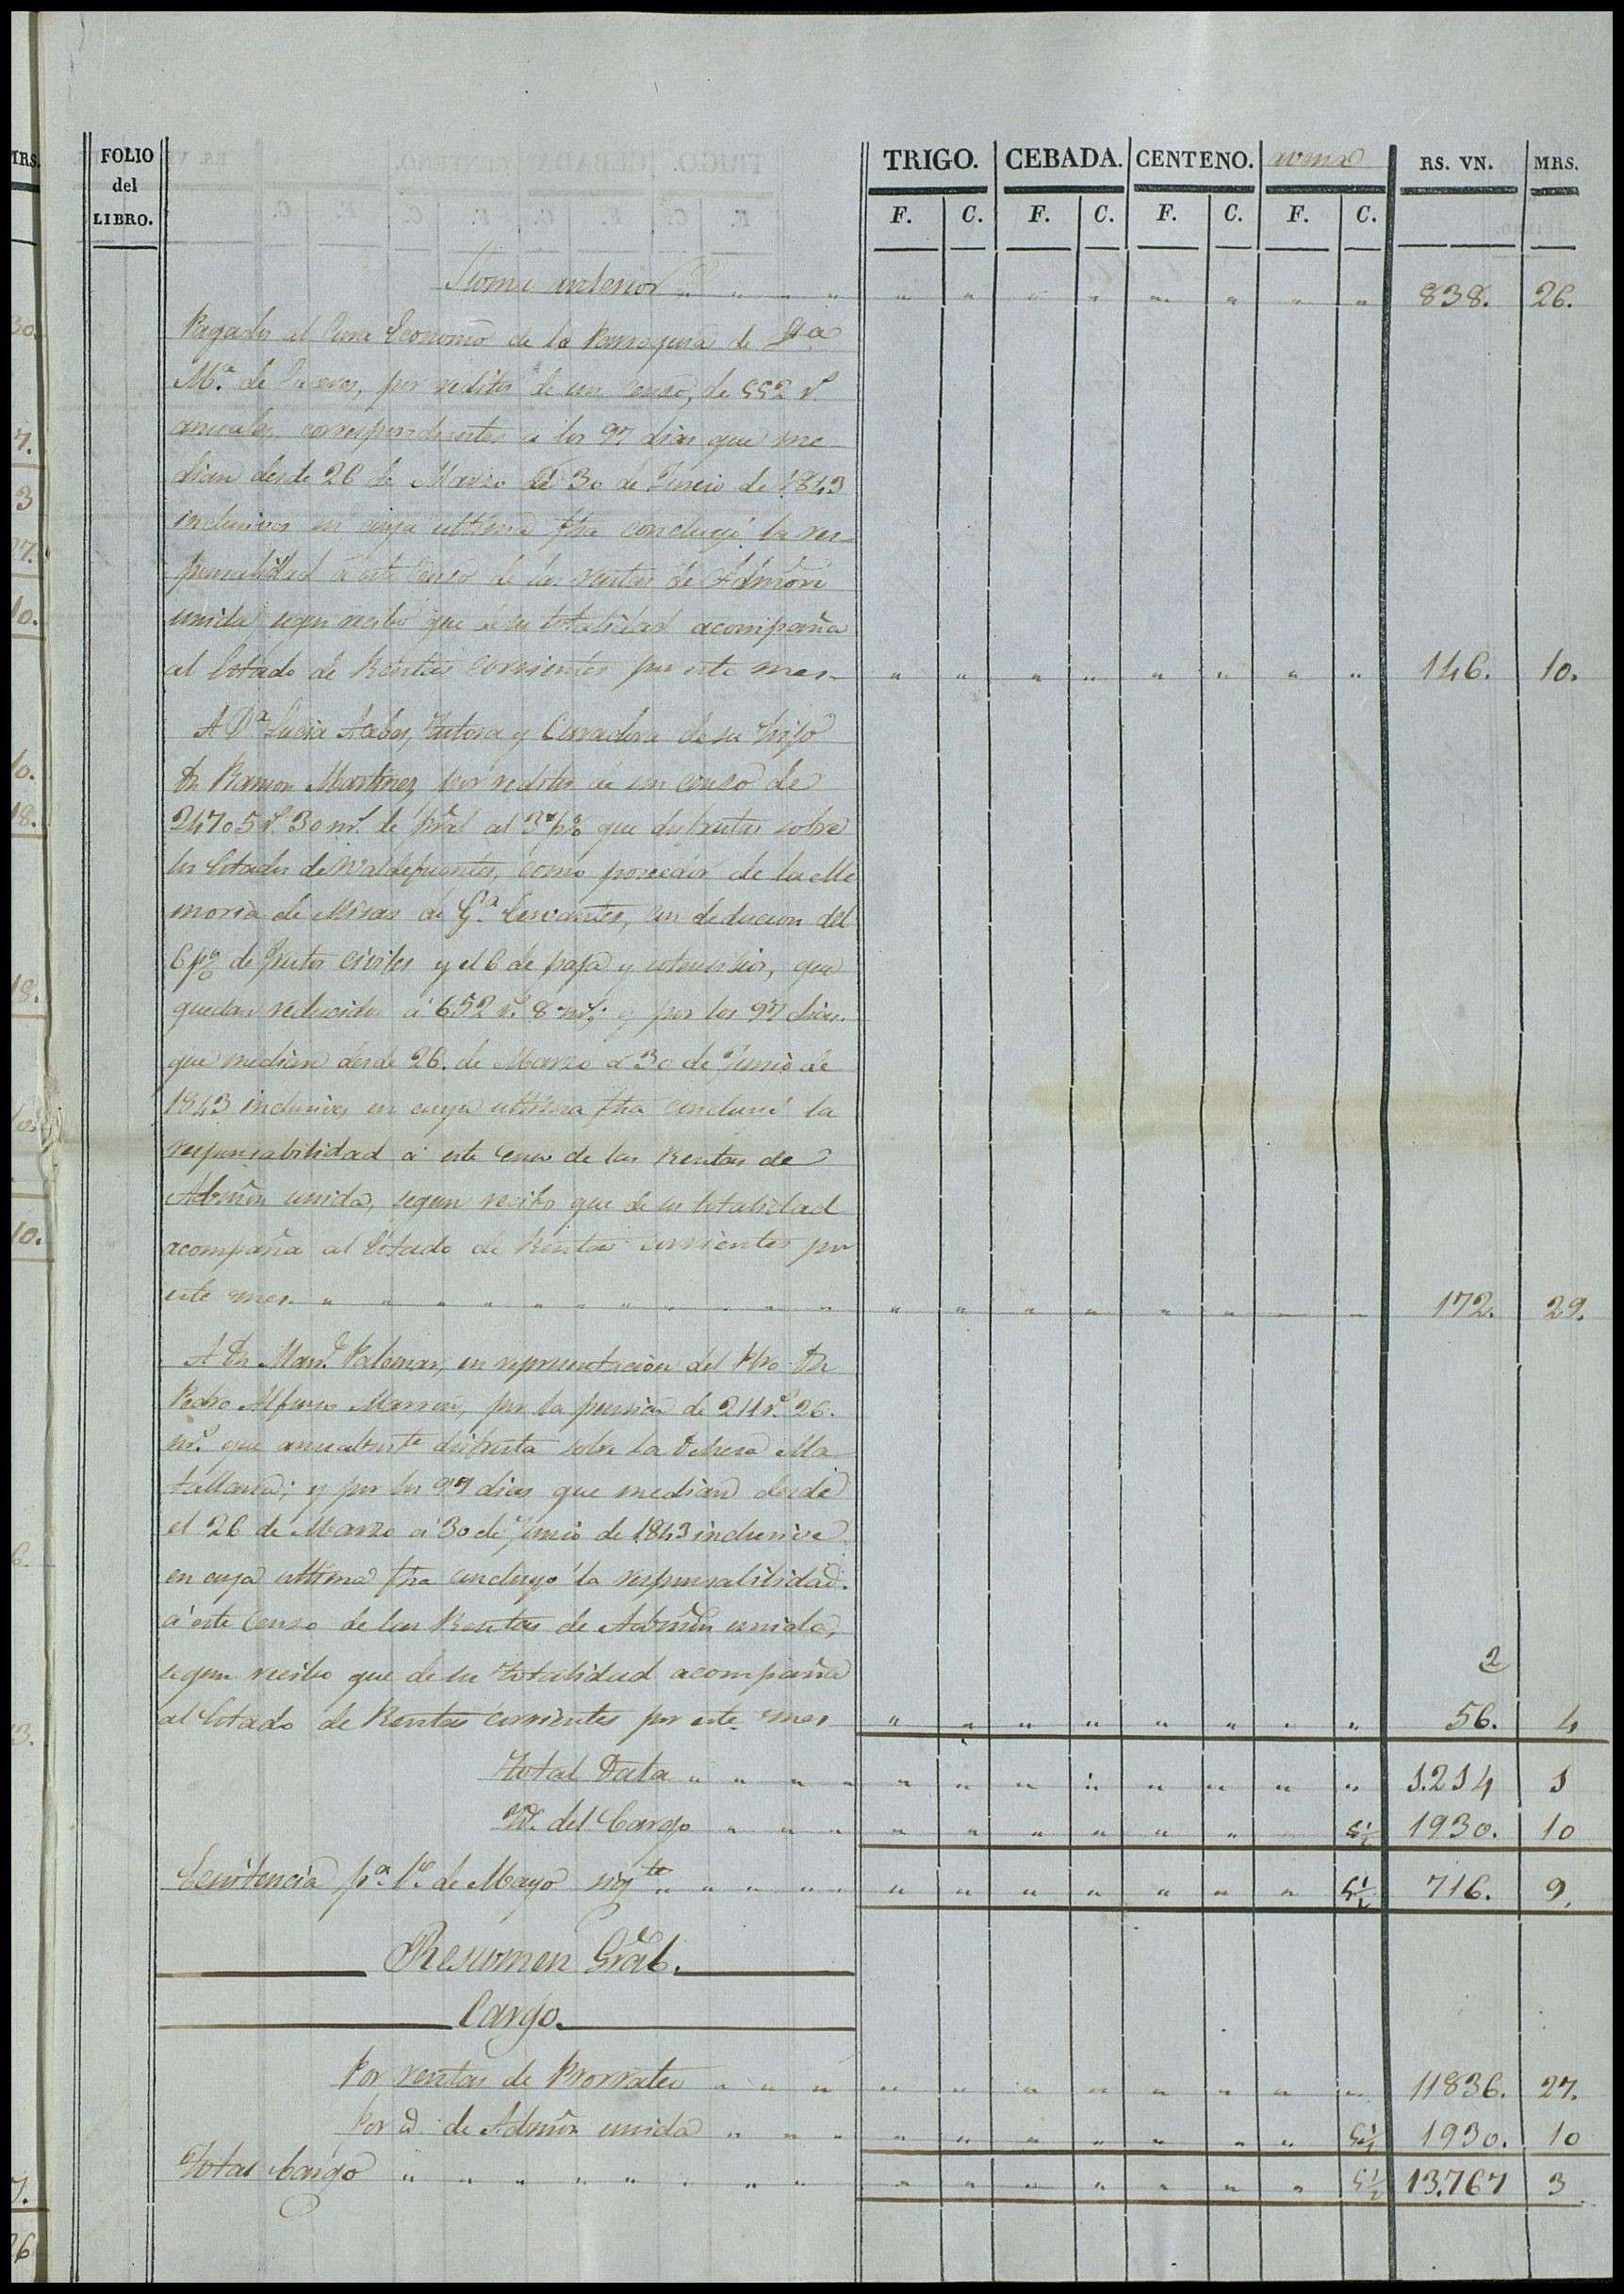 FOLIO del LIBRO. TRIGO. CEBADA. CENTENO. avena RS. VN. MRS.
F. C. F. C. F. C. F. C.
Suma anterior 838. 26.
Pagados al Cura Economo de la Parroquia de Sta
M.a de Caceres, por reditos de un censo, de 552 r.s
anuales, correspondientes a los 97 dias que me
dian desde 26 de Marzo á 30 de Junio de 1843
inclusives en cuya ultima fha concluyó la res-
ponsabilidad á este Censo de las rentas de Admon
unida, segun recibo que de su totalidad acompaña
al Estado de Rentas corrientes por este mes. 146. 10.
A D.a Lucia, Tutora y Curadora de su hijo
Dn Ramon Martinez por reditos de un censo de
24705 r.s 30 m.s de pral al 3 p% que disfruta sobre
los Estados de Valdefuentes, como poseedor de la Me
moria de Misas de G.a Cervantes, con deducion del
6 p% de frutos civiles y el 6 de paja y utensilios, que
quedan reducidos á 652 r.s 8 mrs; y por los 97 dias
que median desde 26. de Marzo á 30 de Junio de
1843 inclusives en cuya ultima fha concluyó la
responsabilidad á este Censo de las Rentas de
Admon unida, segun recibo que de su totalidad
acompaña al Estado de Rentas corrientes por
este mes. 172. 29.
A Dn Man.l Palomar, en representacion del Pbro Dn
Pedro Alfonso, por la pension de 211 r.s 26.
m.s que anualm.te disfruta sobre la Dehesa Ma
tallana; y por los 97 dias que median desde
el 26 de Marzo á 30 de Junio de 1843 inclusive
en cuya ultima fha concluyo la responsabilidad.
á este Censo de las Rentas de Admon unida,
segun recibo que de su totalidad acompaña 2
al Estado de Rentas corrientes por este mes 56. 4
Total Data 1.214 1
Yd. del Cargo 5½ 1930. 10
Ecsistencia p.a 1.o de Mayo sig.te 5½ 716. 9.
Resumen Gral.
Cargo.
Por rentas de Prorrateo 11836. 27.
Por id. de Admon unida 5½ 1930. 10
Total Cargo 5½ 13.767 3